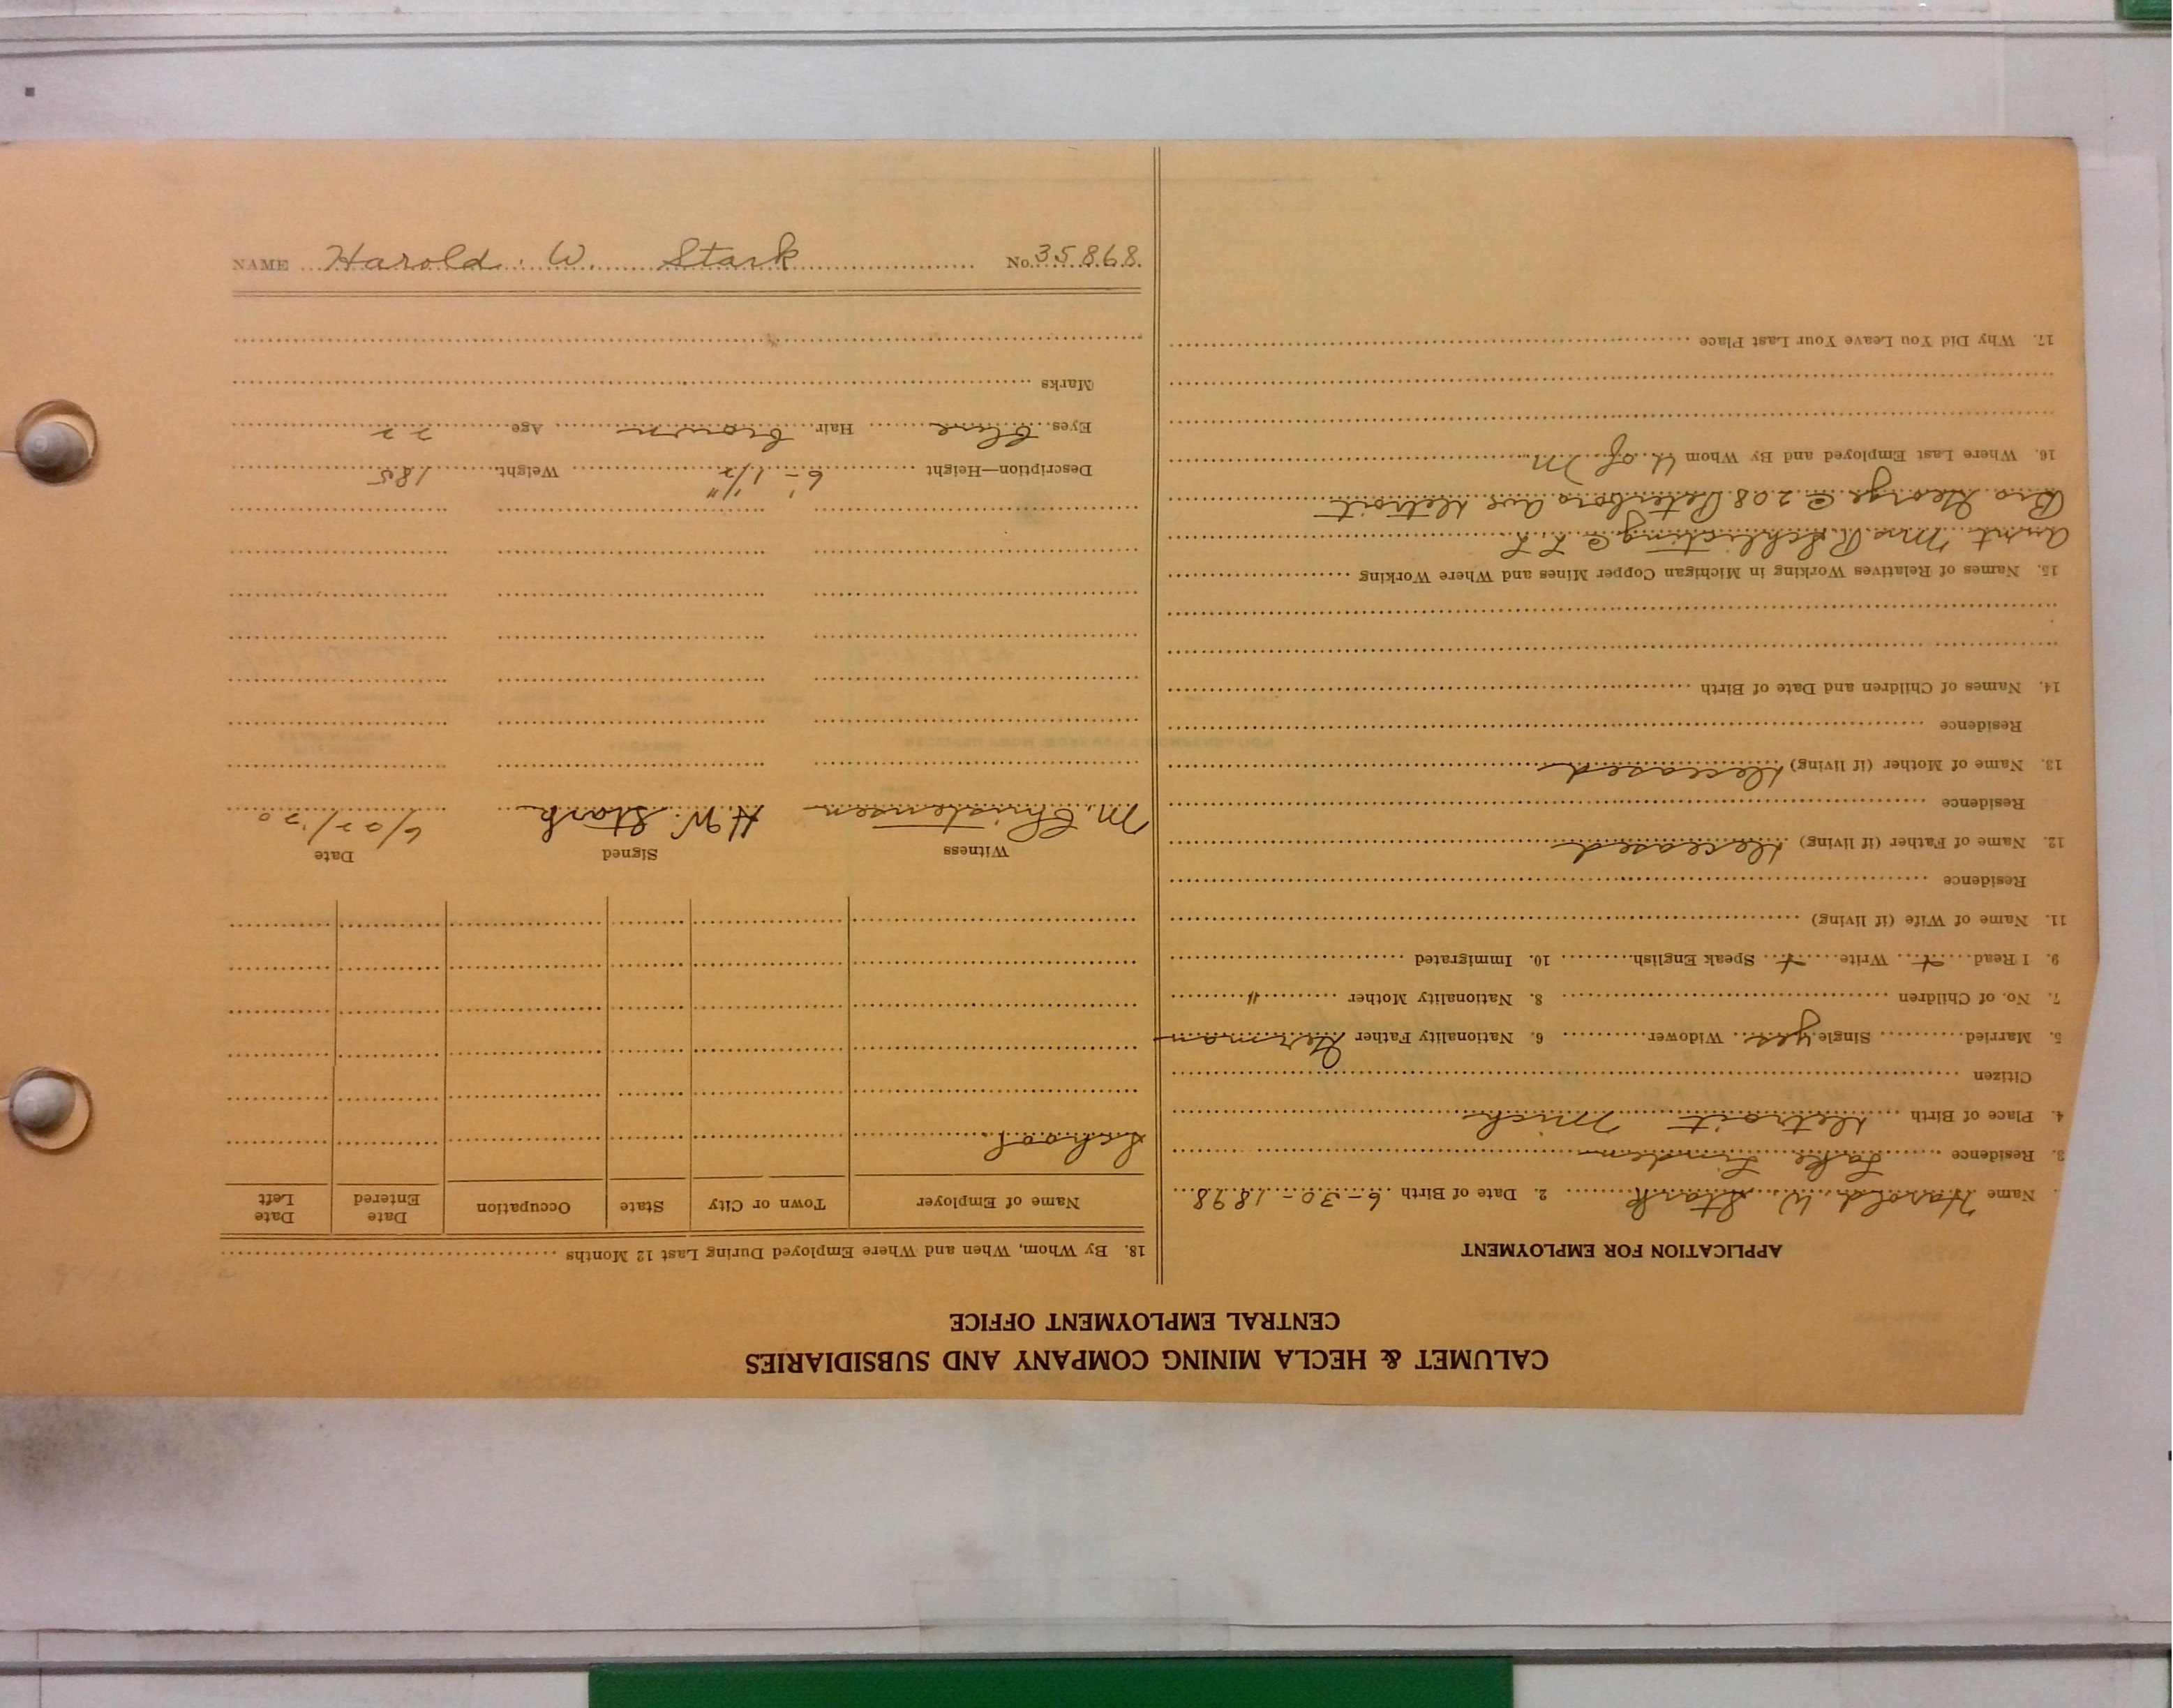 CALUMET & HECLA MINING COMPANY AND SUBSIDIARIES
CENTRAL EMPLOYMENT OFFICE
APPLICATION FOR EMPLOYMENT
Name Harold W. Stark 2. Date of Birth 6-30-1898
3. Residence Lake Linden
4. Place of Birth Detroit Mich
Citizen
5. Married Single yes Widower 6. Nationality Father German
7. No. of Children 8. Nationality Mother "
9. I Read + Write + Speak English 10. Immigrated
11. Name of Wife (if living)
Residence
12. Name of Father (if living) Deceased
Residence
13. Name of Mother (if living) Deceased
Residence
14. Names of Children and Date of Birth
15. Names of Relatives Working in Michigan Copper Mines and Where Working
Aunt Mrs R. Schlicting @ L.L.
Bro George @ 208 Peterboro ave Detroit
16. Where Last Employed and By Whom U of M
17. Why Did You Leave Your Last Place
18. By Whom, When and Where Employed During Last 12 Months
Name of Employer Town or City State Occupation Date Entered Date Left
School
Witness Signed Date
M. Christensen H.W. Stark 6/22/20
Description—Height 6'-1 1/2" Weight 185
Eyes Blue Hair brown Age 22
Marks
NAME Harold. W. Stark No. 35868